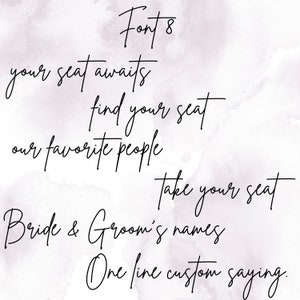 Font 8
your seat awaits
find your seat
our favorite people
take your seat
Bride & Groom's names
One line custom saying.